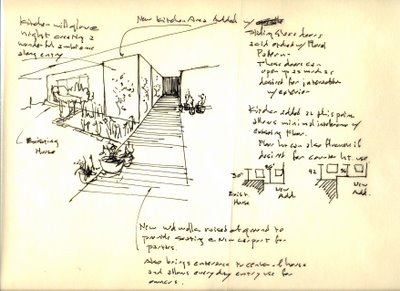 Kitchen will glow @
night creating a
wonderful ambience
along entry.
New Kitchen Area Added w/
Sliding Glass doors
sand etched w/ Floral
Pattern-
These doors can
open up as much as
desired for interaction
w/ exterior
Existing
House
Kitchen added at this point
allows min. interference w/
existing Floor.
Floor ht. can also fluctuate if
desired for counter ht. use
30"
36"
42
36
Exist.
House
New
Add.
New
Add.
New wd walk raised off ground to
provide seating @ New carport for
parties.
Also brings entrance to center of house
and allows everyday entry use for
owners.